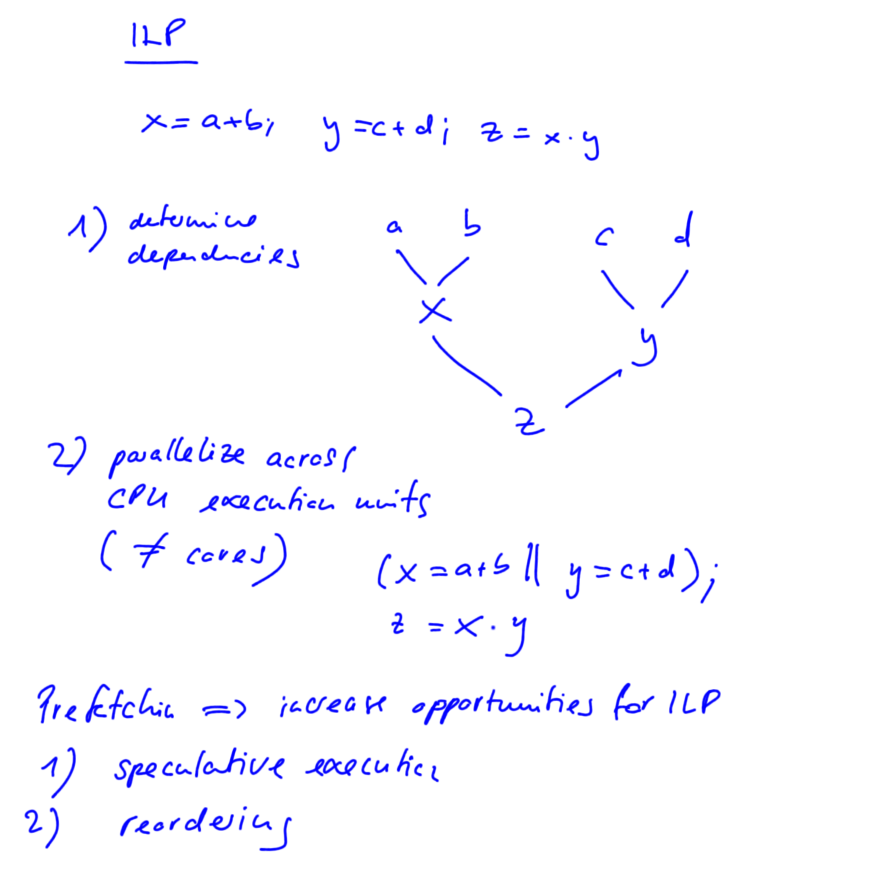 ILP
x = a+b; y = c+d; z = x·y
1) determine
dependencies
a b c d
x
y
z
2) parallelize across
CPU execution units
(≠ cores)
(x = a+b || y = c+d);
z = x·y
Prefetching => increase opportunities for ILP
1) speculative execution
2) reordering